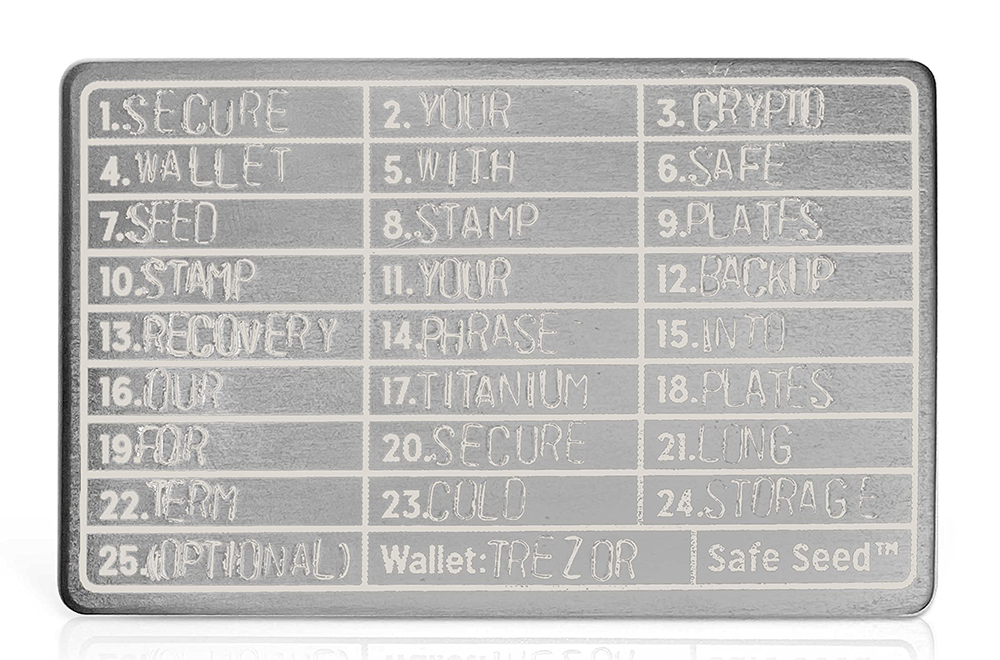 1. SECURE 2. YOUR 3. CRYPTO
4. WALLET 5. WITH 6. SAFE
7. SEED 8. STAMP 9. PLATES
10. STAMP 11. YOUR 12. BACKUP
13. RECOVERY 14. PHRASE 15. INTO
16. OUR 17. TITANIUM 18. PLATES
19. FOR 20. SECURE 21. LONG
22. TERM 23. COLD 24. STORAGE
25. (OPTIONAL) Wallet: TREZOR Safe Seed™